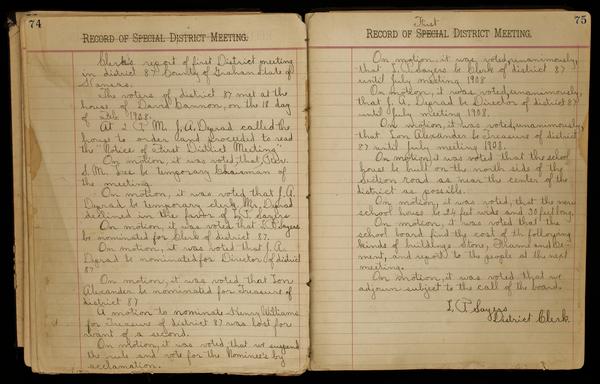 74
RECORD OF SPECIAL DISTRICT MEETING.
Clerk's report of first District meeting
in district 87 County of Graham State of
Kansas.
The voters of district 87 met at the
house of Dave Cannon, on the 18 day
of 1908.
At 2 P.M. J.A. Deprad called the
house to order and proceeded to read
the "Notice of First District Meeting"
On motion, it was voted, that,
S. M. Lee be temporary Chairman of
the meeting.
On motion, it was voted that J.A.
Deprad be temporary clerk. Mr. Deprad
declined in the favor of L.P. Sayers
On motion, it was voted that L.P. Sayers
be nominated for Clerk of district 87.
On motion, it was voted that J.A.
Deprad be nominated for Director of district
87"
On motion, it was voted that Lon
Alexander be nominated for Treasure of
district 87
A motion to nominate Henry Williams
for Treasure of district 87 was lost for
want of a second.
On motion, it was voted, that we suspend
the rule and vote for the Nominee's by
acclamation.
75
First
RECORD OF SPECIAL DISTRICT MEETING.
On motion, it was voted, unanimously,
that L.P. Sayers be Clerk of district 87
until July meeting 1908
On motion, it was voted, unanimously,
that J. A. Deprad be Director of district 87
until July meeting 1908.
On motion, it was voted, unanimously,
that Lon Alexander be Treasure of district
87 until July meeting 1908.
On motion, it was voted that the school
house be built on the north side of the
section road as near the center of the
district as possible.
On motion, it was voted, that the new
school house be 24 feet wide and 30 feet long.
On motion, it was voted that the
school board find the cost of the following
kinds of buildings Stone, Frame and Ce-
ment, and report to the people at the next
meeting.
On motion, it was voted that we
adjourn subject to the call of the board.
L. P. Sayers
District Clerk.